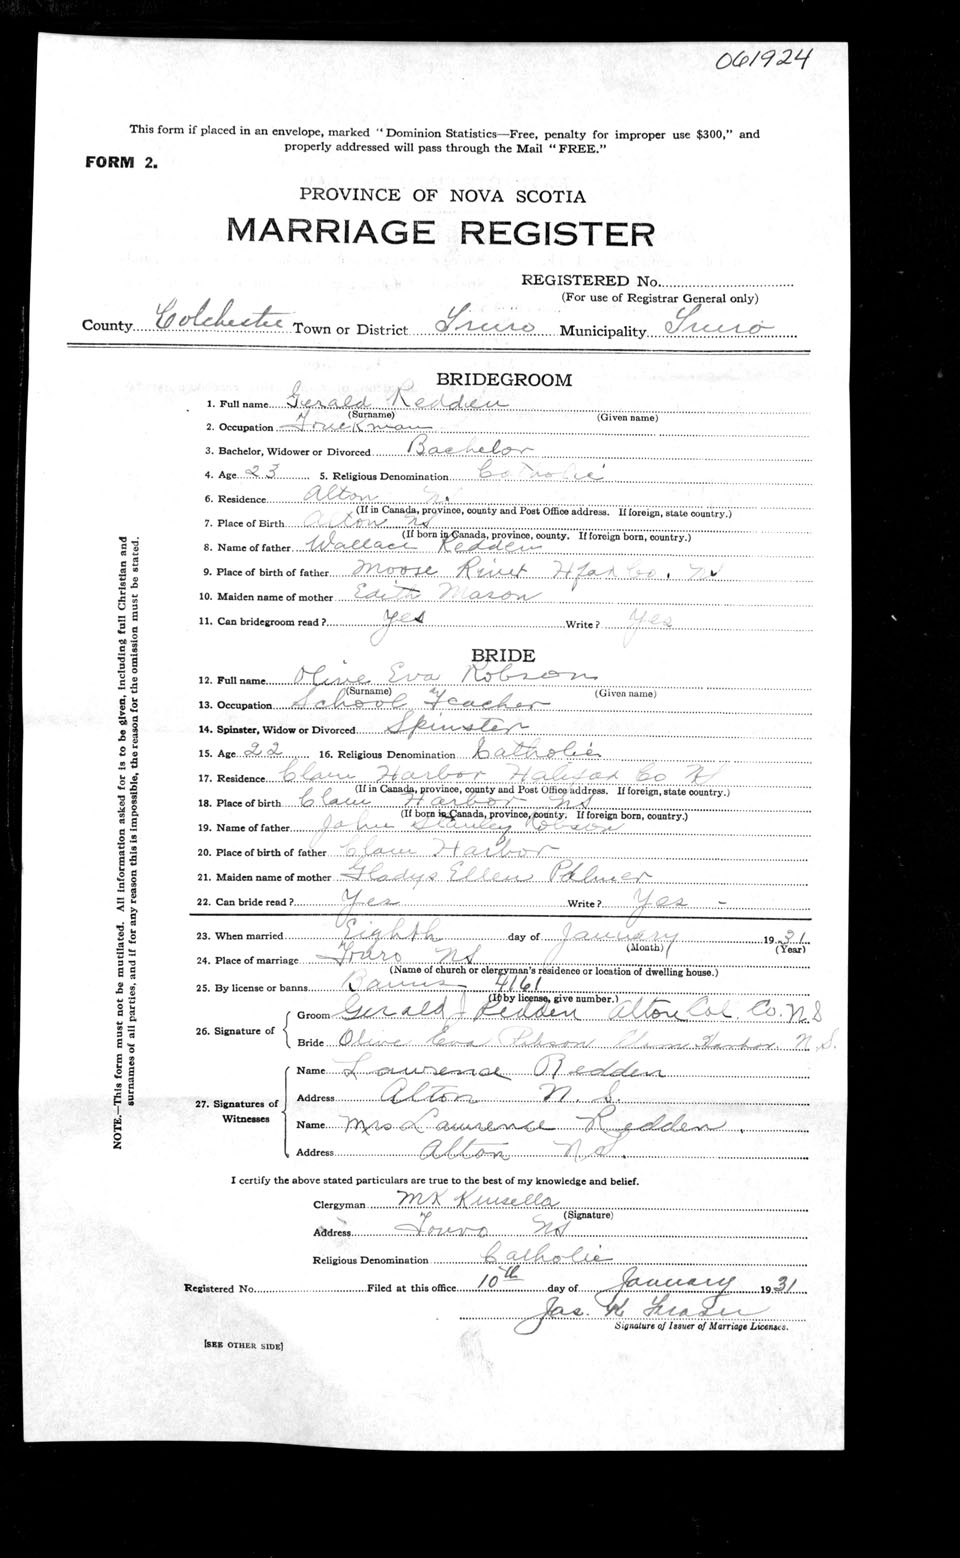 061924
This form if placed in an envelope, marked "Dominion Statistics—Free, penalty for improper use $300," and
properly addressed will pass through the Mail "FREE."
FORM 2.
PROVINCE OF NOVA SCOTIA
MARRIAGE REGISTER
REGISTERED No.
(For use of Registrar General only)
County Colchester Town or District Truro Municipality Truro
BRIDEGROOM
1. Full name Gerald Redden
(Surname) (Given name)
2. Occupation Truckman
3. Bachelor, Widower or Divorced Bachelor
4. Age 23 5. Religious Denomination Catholic
6. Residence Alton N.
(If in Canada, province, county and Post Office address. If foreign, state country.)
7. Place of Birth Alton NS
(If born in Canada, province, county. If foreign born, country.)
8. Name of father Wallace Redden
9. Place of birth of father Moose River Hfax Co. NS
10. Maiden name of mother Edith Mason
11. Can bridegroom read? Yes Write? Yes
BRIDE
12. Full name Olive Eva Robson
(Surname) (Given name)
13. Occupation School Teacher
14. Spinster, Widow or Divorced Spinster
15. Age 22 16. Religious Denomination Catholic
17. Residence Clam Harbor Halifax Co NS
(If in Canada, province, county and Post Office address. If foreign, state country.)
18. Place of birth Clam Harbor NS
(If born in Canada, province, county. If foreign born, country.)
19. Name of father John Stanley Robson
20. Place of birth of father Clam Harbor
21. Maiden name of mother Gladys Ellen Palmer
22. Can bride read? Yes Write? Yes -
23. When married Eighth day of January 1931
(Month) (Year)
24. Place of marriage Truro NS
(Name of church or clergyman's residence or location of dwelling house.)
25. By license or banns Banns 4161
(If by license, give number.)
26. Signature of Groom Gerald J Redden Alton Col. Co. N S
Bride Olive Eva Robson Clam Harbor N.S.
27. Signatures of Witnesses Name Lawrense Redden
Address Alton N. S.
Name Mrs Lawrense Redden.
Address Alton N S.
I certify the above stated particulars are true to the best of my knowledge and belief.
Clergyman Kinsella
(Signature)
Address Truro NS
Religious Denomination Catholic
Registered No. Filed at this office 10th day of January 1931
Jas. K Fraser
Signature of Issuer of Marriage Licenses.
[SEE OTHER SIDE]
NOTE.—This form must not be mutilated. All information asked for is to be given, including full Christian and
surnames of all parties, and if for any reason this is impossible, the reason for the omission must be stated.